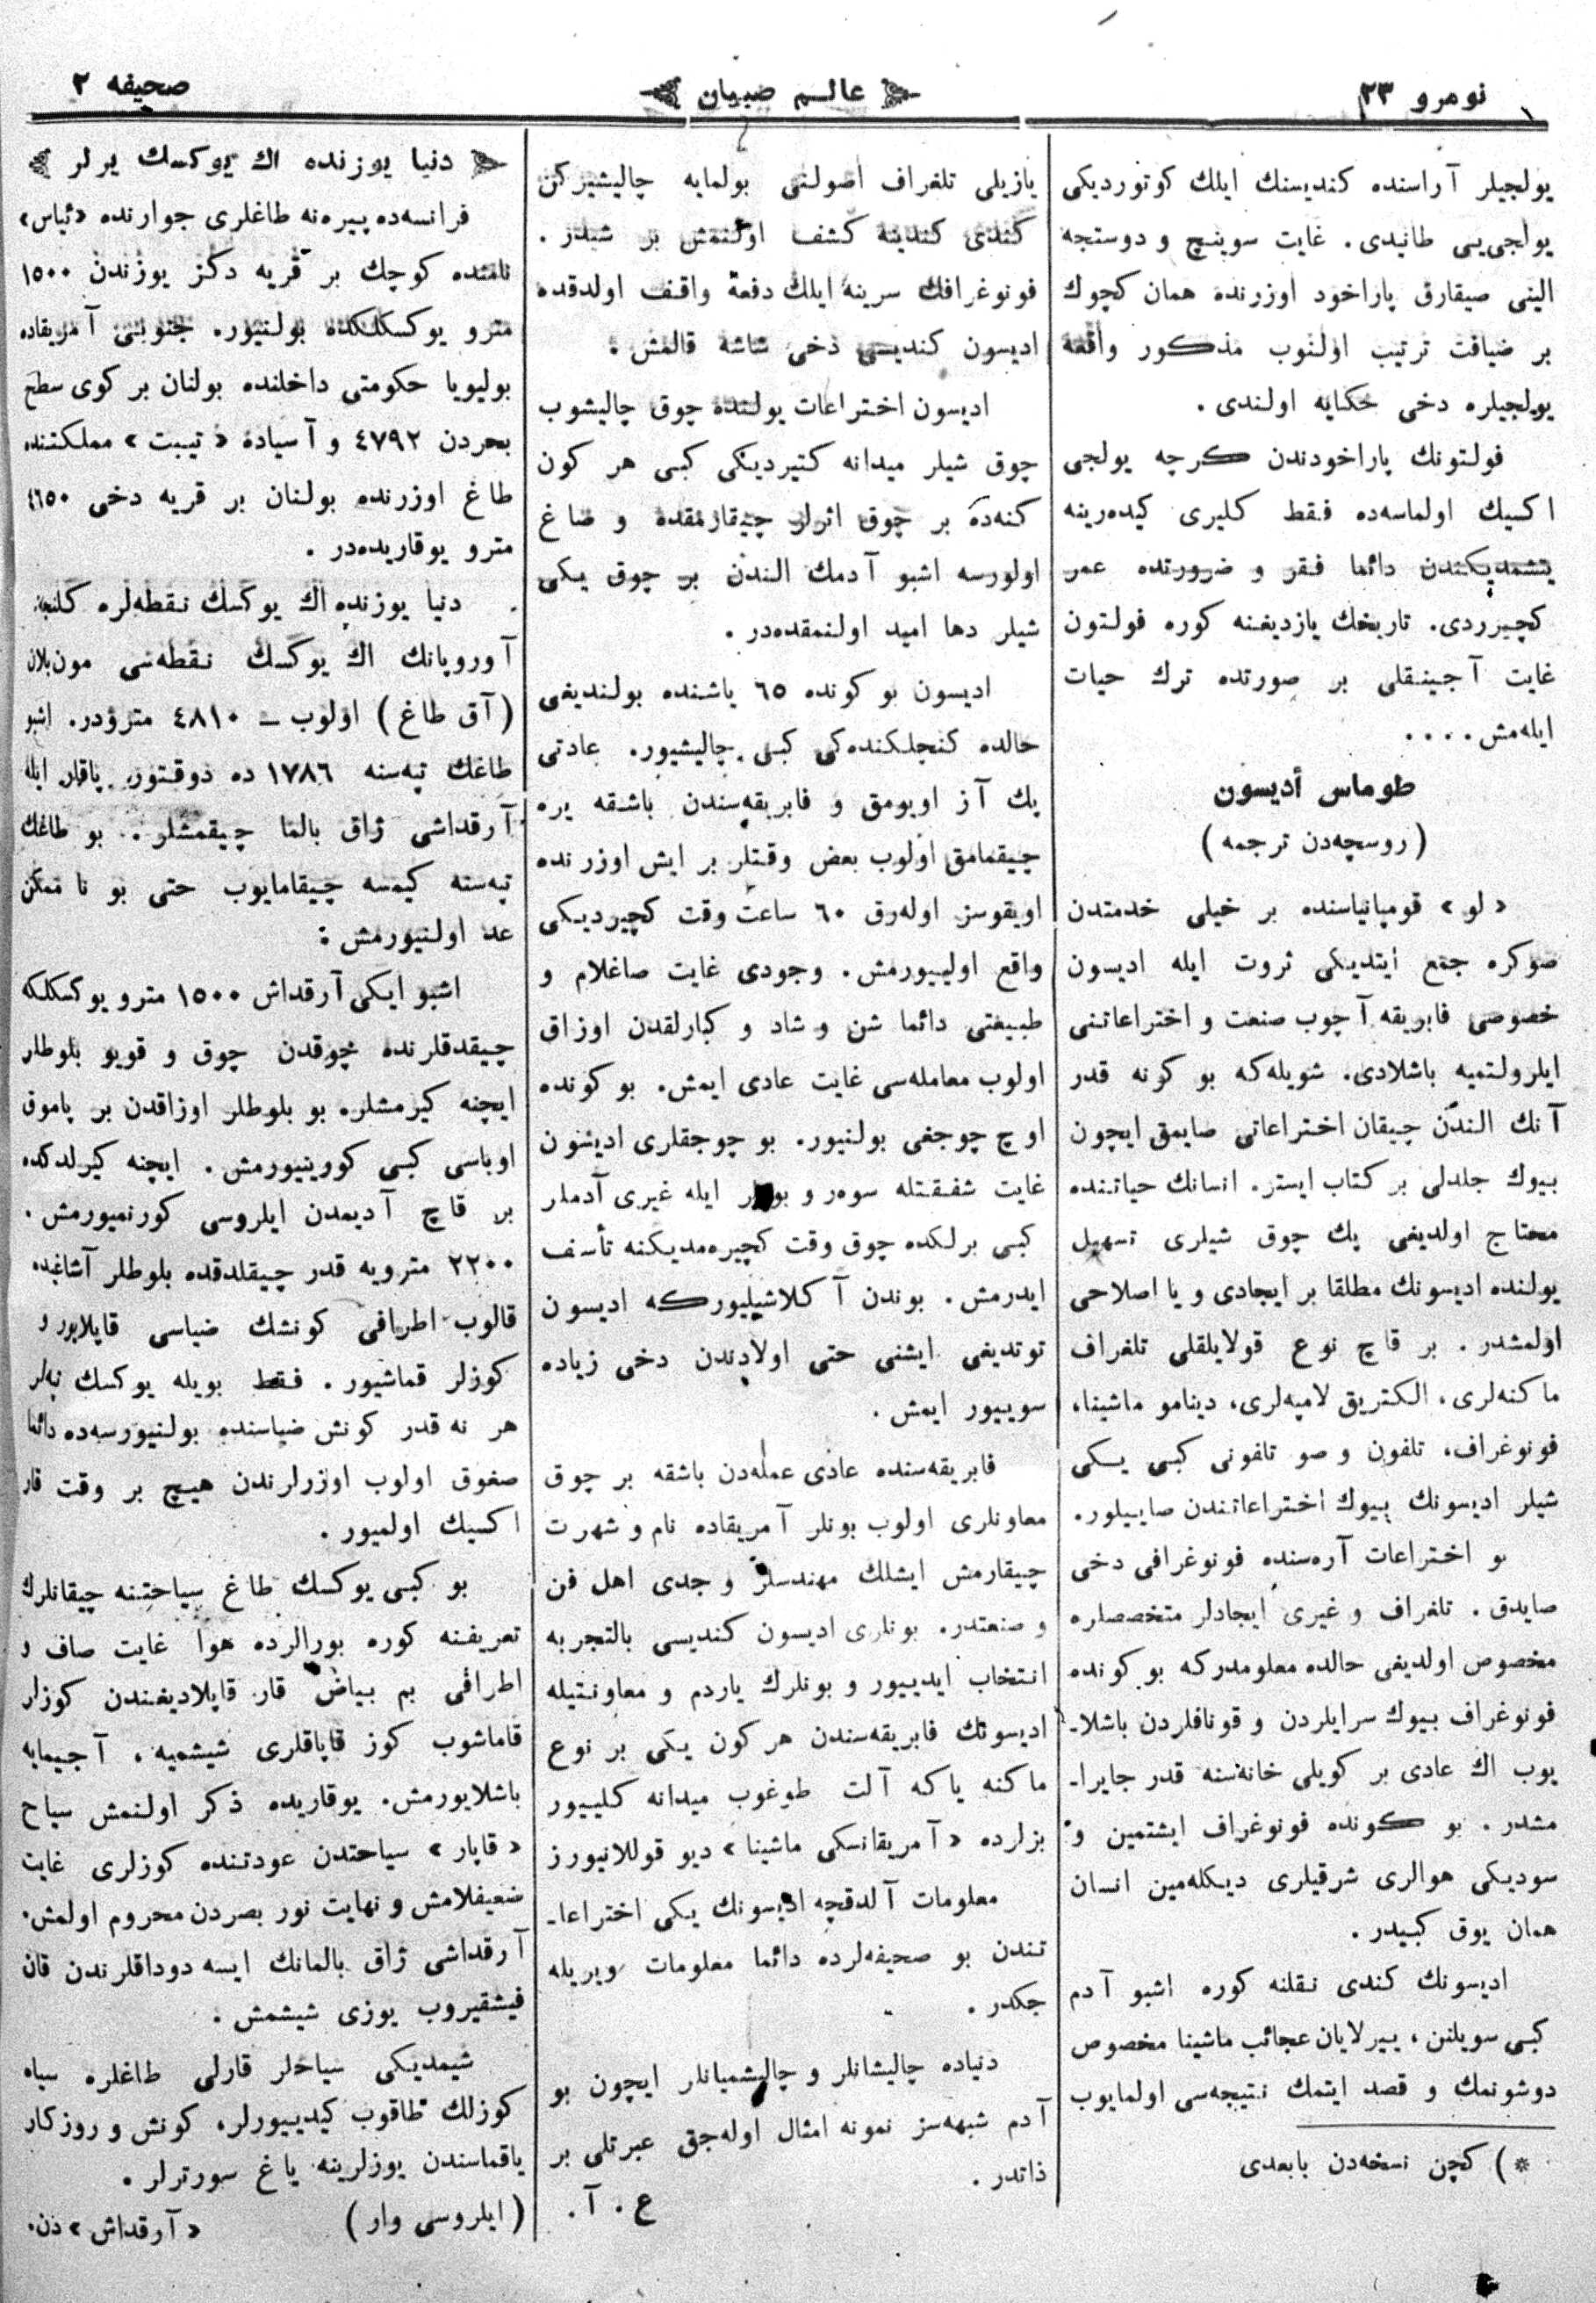 نومرو ٢٣
عالم صبيان
صحيفه ٢
يولجيلر آراسنده كنديسنك ايلك كوتورديكى
يولجى‌يى طانيدى. غايت سوينچ و دوستجه
الينى صيقارق پاراخود اوزرنده همان كچوك
بر ضيافت ترتيب اولنوب مذكور واقعه
يولجيلره دخى حكايه اولندى.
فولتونك پاراخودندن كرچه يولجى
اكسيك اولماسه‌ده فقط كليرى كيده‌رينه
يتشمديكندن دائما فقر و ضرورتده عمر
كچيرردى. تاريخك يازديغنه كوره فولتون
غايت آجينقلى بر صورتده ترك حيات
ايله‌مش....
طوماس أديسون
(روسچه‌دن ترجمه)
«لو» قومپانياسنده بر خيلى خدمتدن
صوكره جمع ايتديكى ثروت ايله اديسون
خصوصى فابريقه آچوب صنعت و اختراعاتنى
ايلرولتميه باشلادى. شويله‌كه بو كونه قدر
آنك الندن چيقان اختراعاتى صايمق ايچون
بيوك جلدلى بر كتاب ايستر. انسانك حياتنده
محتاج اولديغى پك چوق شيلرى تسهيل
يولنده اديسونك مطلقا بر ايجادى و يا اصلاحى
اولمشدر. بر قاچ نوع قولايلقلى تلغراف
ماكنه‌لرى، الكتريق لامپه‌لرى، دينامو ماشينا،
فونوغراف، تلفون و صو تلفونى كبى يكى
شيلر اديسونك بيوك اختراعاتندن صاييلور.
بو اختراعات آره‌سنده فونوغرافى دخى
صايدق. تلغراف و غيرى ايجادلر متخصصلره
مخصوص اولديغى حالده معلومدركه بو كونده
فونوغراف بيوك سرايلردن و قونافلردن باشلا-
يوب اك عادى بر كويلى خانه‌سنه قدر جايرا-
مشدر. بو كونده فونوغراف ايشتمين و
سوديكى هوالرى شرقيلرى ديكله‌مين انسان
همان يوق كبيدر.
اديسونك كندى نقلنه كوره اشبو آدم
كبى سويلنن، ييرلايان عجائب ماشينا مخصوص
دوشونمك و قصد ايتمك نتيجه‌سى اولمايوب
*) كچن نسخه‌دن بابعدى
يازيلى تلغراف اصولنى بولمايه چاليشيركن
كندى كندينه كشف اولنمش بر شيدر.
فونوغرافك سرينه ايلك دفعه واقف اولدقده
اديسون كنديسى دخى شاشه قالمش.
اديسون اختراعات يولنده چوق چاليشوب
چوق شيلر ميدانه كتيرديكى كبى هر كون
كنه‌ده بر چوق اثرلر چيقارمقده و صاغ
اولورسه اشبو آدمك الندن بر چوق يكى
شيلر دها اميد اولنمقده‌در.
اديسون بو كونده ٦٥ ياشنده بولنديغى
حالده كنجلكنده‌كى كبى چاليشيور. عادتى
پك آز اويومق و فابريقه‌سندن باشقه يره
چيقمامق اولوب بعض وقتلر بر ايش اوزرنده
اويقوسز اوله‌رق ٦٠ ساعت وقت كچيرديكى
واقع اولييورمش. وجودى غايت صاغلام و
طبيعتى دائما شن و شاد و كبارلقدن اوزاق
اولوب معامله‌سى غايت عادى ايمش. بو كونده
اوچ چوجغى بولنيور. بو چوجقلرى اديسون
غايت شفقتله سوه‌ر و ايله غيرى آدملر
كبى برلكده چوق وقت كچيره‌مديكنه تأسف
ايدرمش. بوندن آكلاشيليوركه اديسون
توتديغى ايشنى حتى اولادندن دخى زياده
سوييور ايمش.
فابريقه‌سنده عادى عمله‌دن باشقه بر چوق
معاونلرى اولوب بونلر آمريقاده نام و شهرت
چيقارمش ايشلك مهندسلر و جدى اهل فن
و صنعتدر. بونلرى اديسون كنديسى بالتجربه
انتخاب ايدييور و بونلرك ياردم و معاونتيله
اديسونك فابريقه‌سندن هر كون يكى بر نوع
ماكنه ياكه آلت طوغوب ميدانه كلييور
بزلرده «آمريقانسكى ماشينا» ديو قوللانيورز
معلومات آلدقچه اديسونك يكى اختراعا-
تندن بو صحيفه‌لرده دائما معلومات ويريله
جكدر.
دنياده چاليشانلر و چاليشميانلر ايچون بو
آدم شبهه‌سز نمونه امثال اوله‌جق عبرتلى بر
ذاتدر.
ع. آ.
دنيا يوزنده اك يوكسك يرلر
فرانسه‌ده پيره‌نه طاغلرى جوارنده
نامنده كوچك بر قريه دكز يوزندن ١٥٠٠
مترو يوكسكلكده بولنيور. جنوبى آمريقاده
بوليويا حكومتى داخلنده بولنان بر كوى سطح
بحردن ٤٧٩٢ و آسياده «تيبت» مملكتنده
طاغ اوزرنده بولنان بر قريه دخى ٤٦٥٠
مترو يوقاريده‌در.
دنيا يوزنده اك يوكسك نقطه‌لره كلنجه:
آوروپانك اك يوكسك نقطه‌سى مون‌بلان
(آق طاغ) اولوب — ٤٨١٠ مترودر. اشبو
طاغك تپه‌سنه ١٧٨٦ ده دوقتور ايله
آرقداشى ژاق بالما چيقمشلر. بو طاغك
تپه‌سنه كيمسه چيقامايوب حتى بو نا ممكن
عد اولنيورمش:
اشبو ايكى آرقداش ١٥٠٠ مترو يوكسكلكه
چيقدقلرنده چوقدن چوق و قويو بلوطلر
ايچنه كيرمشلر. بو بلوطلر اوزاقدن بر پاموق
اوباسى كبى كورينيورمش. ايچنه كيرلدكده
بر قاچ آديمدن ايلروسى كورنميورمش.
٢٢٠٠ مترويه قدر چيقلدقده بلوطلر آشاغيده
قالوب اطرافى كونشك ضياسى قاپلايور و
كوزلر قماشيور. فقط بويله يوكسك تپه‌لر
هر نه قدر كونش ضياسنده بولنيورسه‌ده دائما
صغوق اولوب اوزرلرندن هيچ بر وقت قار
اكسيك اولميور.
بو كبى يوكسك طاغ سياحتنه چيقانلرك
تعريفنه كوره بورالرده هوا غايت صاف و
اطرافى بم بياض قار قاپلاديغندن كوزلر
قاماشوب كوز قاپاقلرى شيشميه، آجيمايه
باشلايورمش. يوقاريده ذكر اولنمش سياح
«قاپار» سياحتدن عودتنده كوزلرى غايت
ضعيفلامش و نهايت نور بصردن محروم اولمش.
آرقداشى ژاق بالمانك ايسه دوداقلرندن قان
فيشقيروب يوزى شيشمش.
شيمديكى سياحلر قارلى طاغلره سياه
كوزلك طاقوب كيدييورلر، كونش و روزكار
ياقماسندن يوزلرينه ياغ سورترلر.
(ايلروسى وار) «آرقداش» دن.